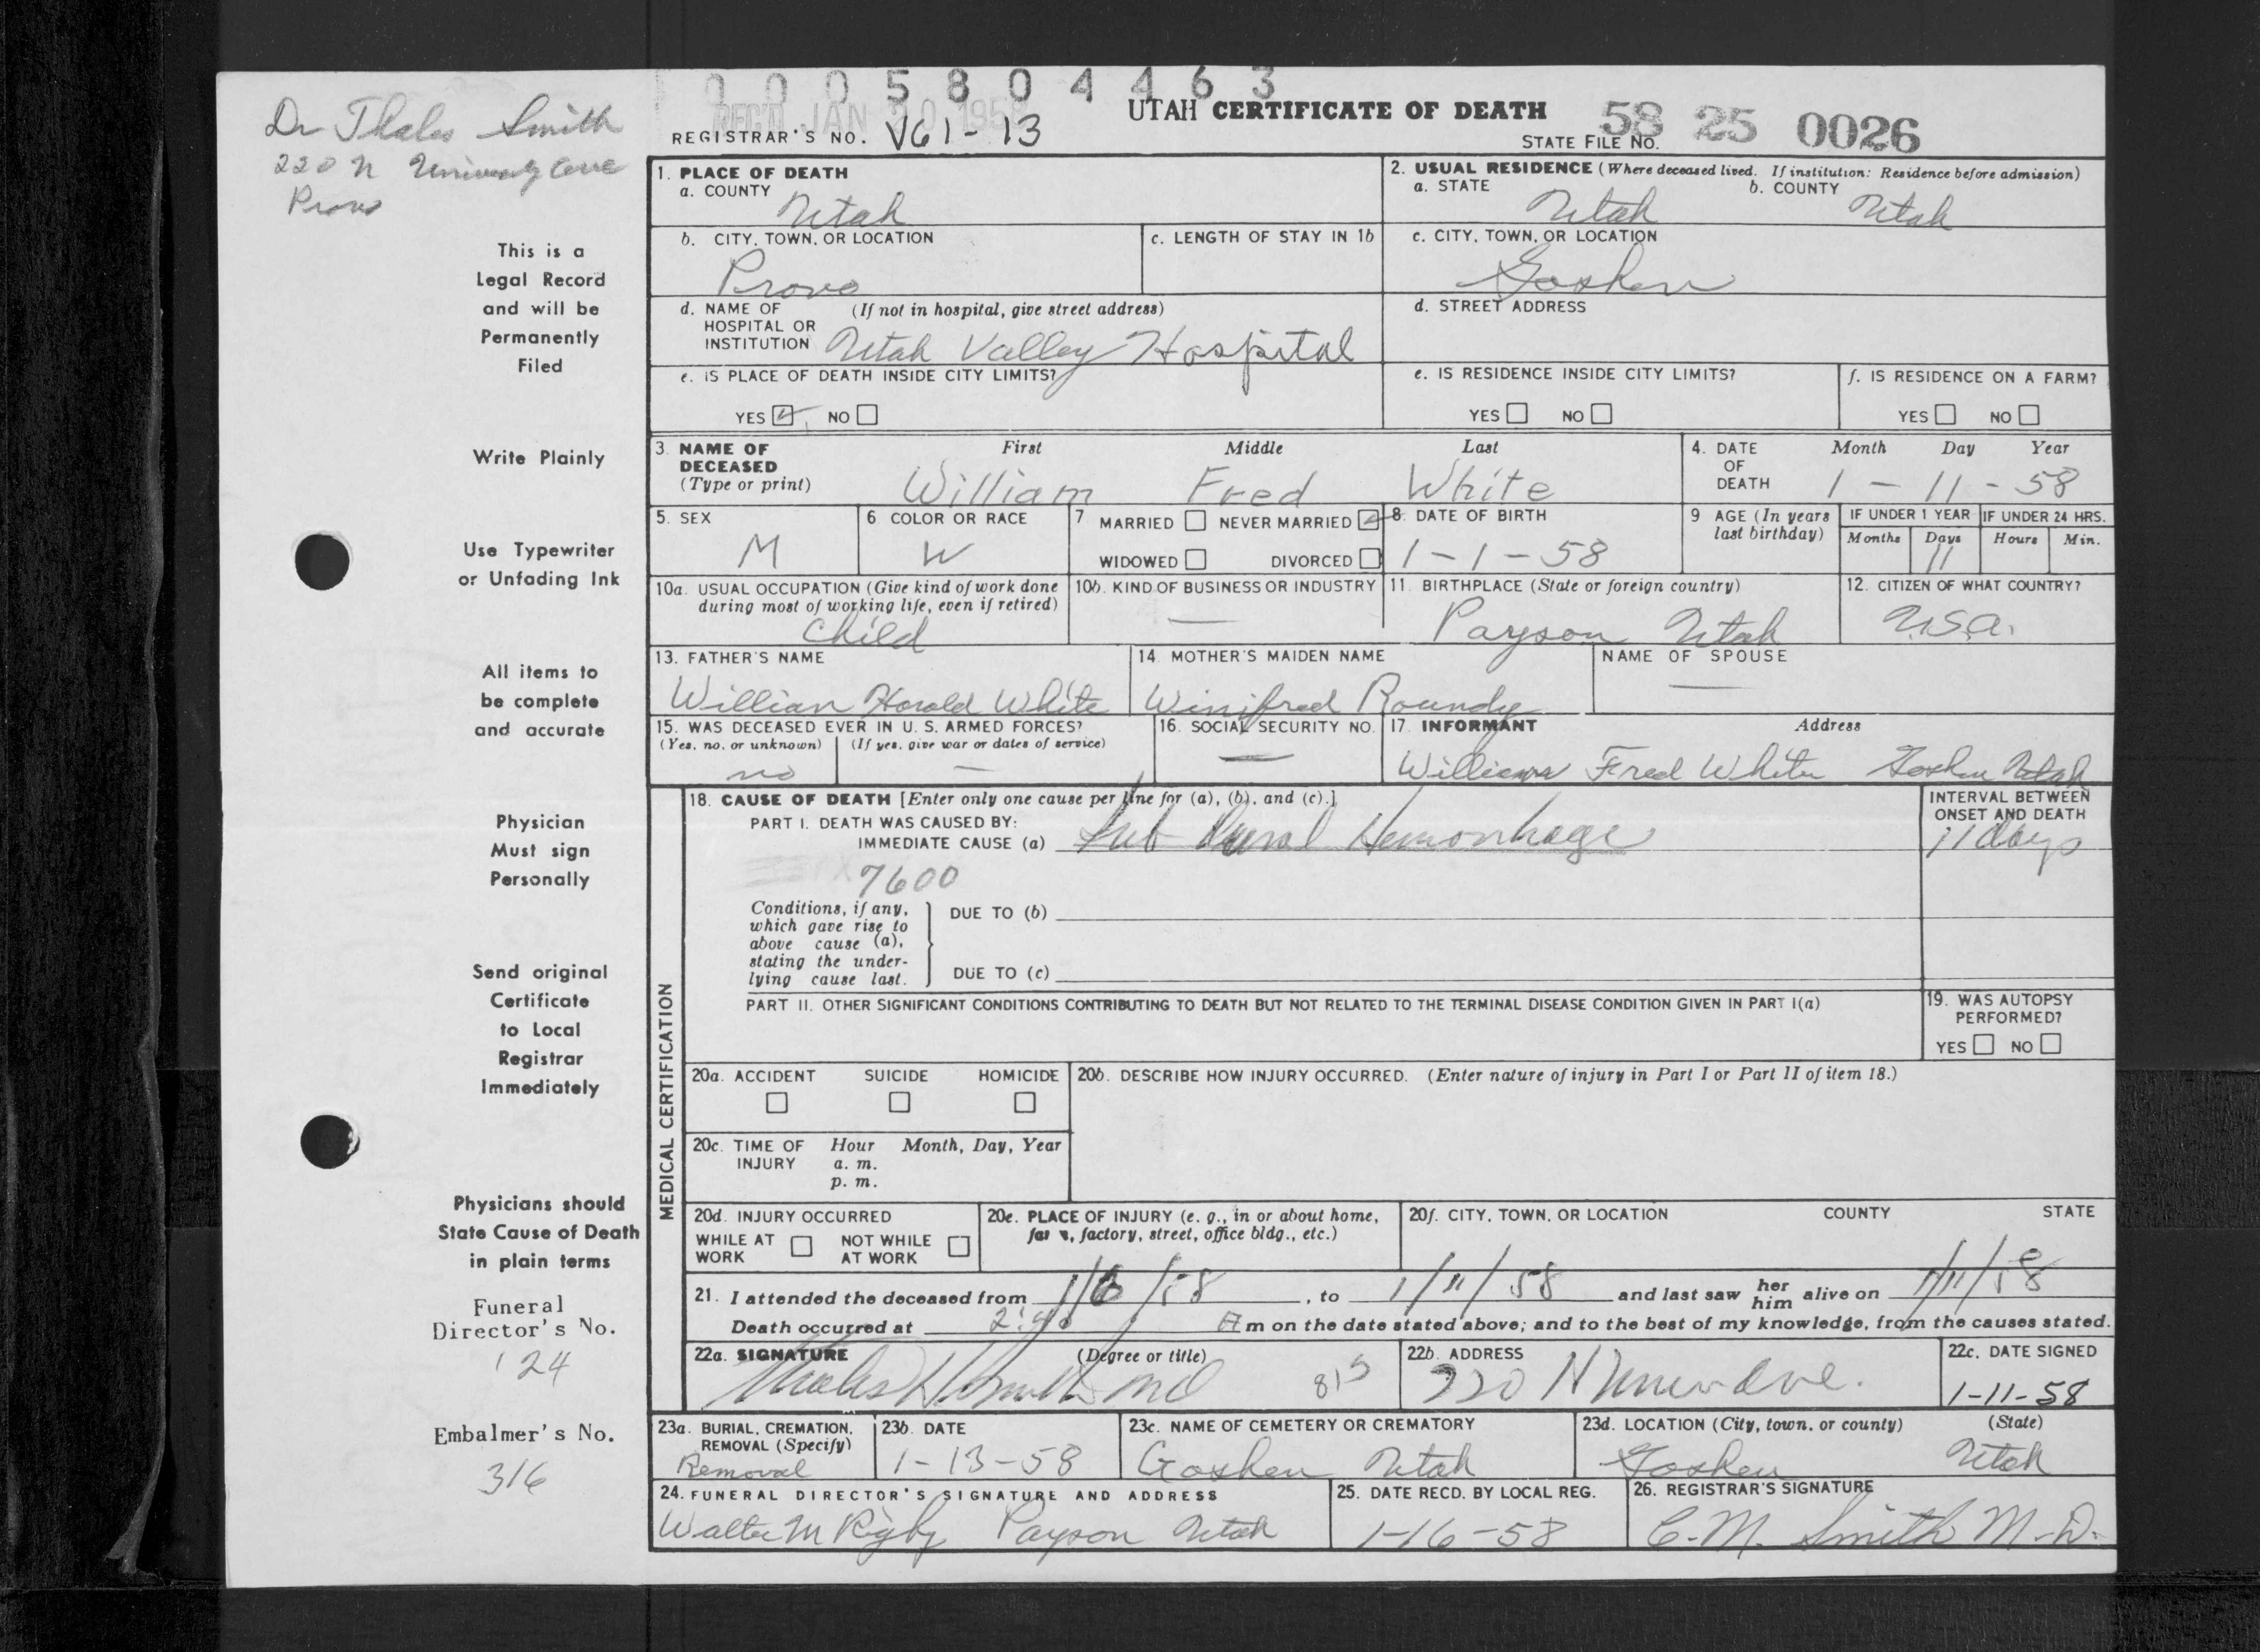 0005804463
REC'D JAN 1958
UTAH CERTIFICATE OF DEATH
58 25 0026
REGISTRAR'S NO. V61-13
STATE FILE NO.
Dr Thales Smith
220 N University Ave
Provo
This is a
Legal Record
and will be
Permanently
Filed
Write Plainly
Use Typewriter
or Unfading Ink
All items to
be complete
and accurate
Physician
Must sign
Personally
Send original
Certificate
to Local
Registrar
Immediately
Physicians should
State Cause of Death
in plain terms
Funeral
Director's No.
124
Embalmer's No.
316
1. PLACE OF DEATH
a. COUNTY
Utah
2. USUAL RESIDENCE (Where deceased lived. If institution: Residence before admission)
a. STATE b. COUNTY
Utah Utah
b. CITY, TOWN, OR LOCATION
Provo
c. LENGTH OF STAY IN 1b
c. CITY, TOWN, OR LOCATION
Goshen
d. NAME OF (If not in hospital, give street address)
HOSPITAL OR
INSTITUTION Utah Valley Hospital
d. STREET ADDRESS
e. IS PLACE OF DEATH INSIDE CITY LIMITS?
YES NO
e. IS RESIDENCE INSIDE CITY LIMITS?
YES NO
f. IS RESIDENCE ON A FARM?
YES NO
3. NAME OF First Middle Last
DECEASED
(Type or print)
William Fred White
4. DATE Month Day Year
OF
DEATH 1 - 11 - 58
5. SEX
M
6 COLOR OR RACE
W
7 MARRIED NEVER MARRIED
WIDOWED DIVORCED
8. DATE OF BIRTH
1-1-58
9 AGE (In years
last birthday)
IF UNDER 1 YEAR IF UNDER 24 HRS.
Months Days Hours Min.
11
10a. USUAL OCCUPATION (Give kind of work done
during most of working life, even if retired)
Child
10b. KIND OF BUSINESS OR INDUSTRY
—
11. BIRTHPLACE (State or foreign country)
Payson Utah
12. CITIZEN OF WHAT COUNTRY?
U.S.A.
13. FATHER'S NAME
William Harold White
14. MOTHER'S MAIDEN NAME
Winifred Roundy
NAME OF SPOUSE
—
15. WAS DECEASED EVER IN U. S. ARMED FORCES?
(Yes, no, or unknown) (If yes, give war or dates of service)
no —
16. SOCIAL SECURITY NO.
—
17. INFORMANT Address
William Fred White Goshen Utah
MEDICAL CERTIFICATION
18. CAUSE OF DEATH [Enter only one cause per line for (a), (b), and (c).]
PART I. DEATH WAS CAUSED BY:
IMMEDIATE CAUSE (a) Sub Dural Hemorrhage
7600
INTERVAL BETWEEN
ONSET AND DEATH
11 days
Conditions, if any,
which gave rise to
above cause (a),
stating the under-
lying cause last.
DUE TO (b)
DUE TO (c)
PART II. OTHER SIGNIFICANT CONDITIONS CONTRIBUTING TO DEATH BUT NOT RELATED TO THE TERMINAL DISEASE CONDITION GIVEN IN PART I(a)
19. WAS AUTOPSY
PERFORMED?
YES NO
20a. ACCIDENT SUICIDE HOMICIDE
20b. DESCRIBE HOW INJURY OCCURRED. (Enter nature of injury in Part I or Part II of item 18.)
20c. TIME OF Hour Month, Day, Year
INJURY a. m.
p. m.
20d. INJURY OCCURRED
WHILE AT NOT WHILE
WORK AT WORK
20e. PLACE OF INJURY (e. g., in or about home,
farm, factory, street, office bldg., etc.)
20f. CITY, TOWN, OR LOCATION COUNTY STATE
21. I attended the deceased from 1/6/58, to 1/11/58 and last saw her him alive on 1/11/58
Death occurred at 2:40 A m on the date stated above; and to the best of my knowledge, from the causes stated.
22a. SIGNATURE (Degree or title)
Thales H Smith MD 815
22b. ADDRESS
220 N Univ Ave.
22c. DATE SIGNED
1-11-58
23a. BURIAL, CREMATION,
REMOVAL (Specify)
Removal
23b. DATE
1-13-58
23c. NAME OF CEMETERY OR CREMATORY
Goshen Utah
23d. LOCATION (City, town, or county) (State)
Goshen Utah
24. FUNERAL DIRECTOR'S SIGNATURE AND ADDRESS
Walter M Rigby Payson Utah
25. DATE RECD. BY LOCAL REG.
1-16-58
26. REGISTRAR'S SIGNATURE
C. M. Smith M.D.